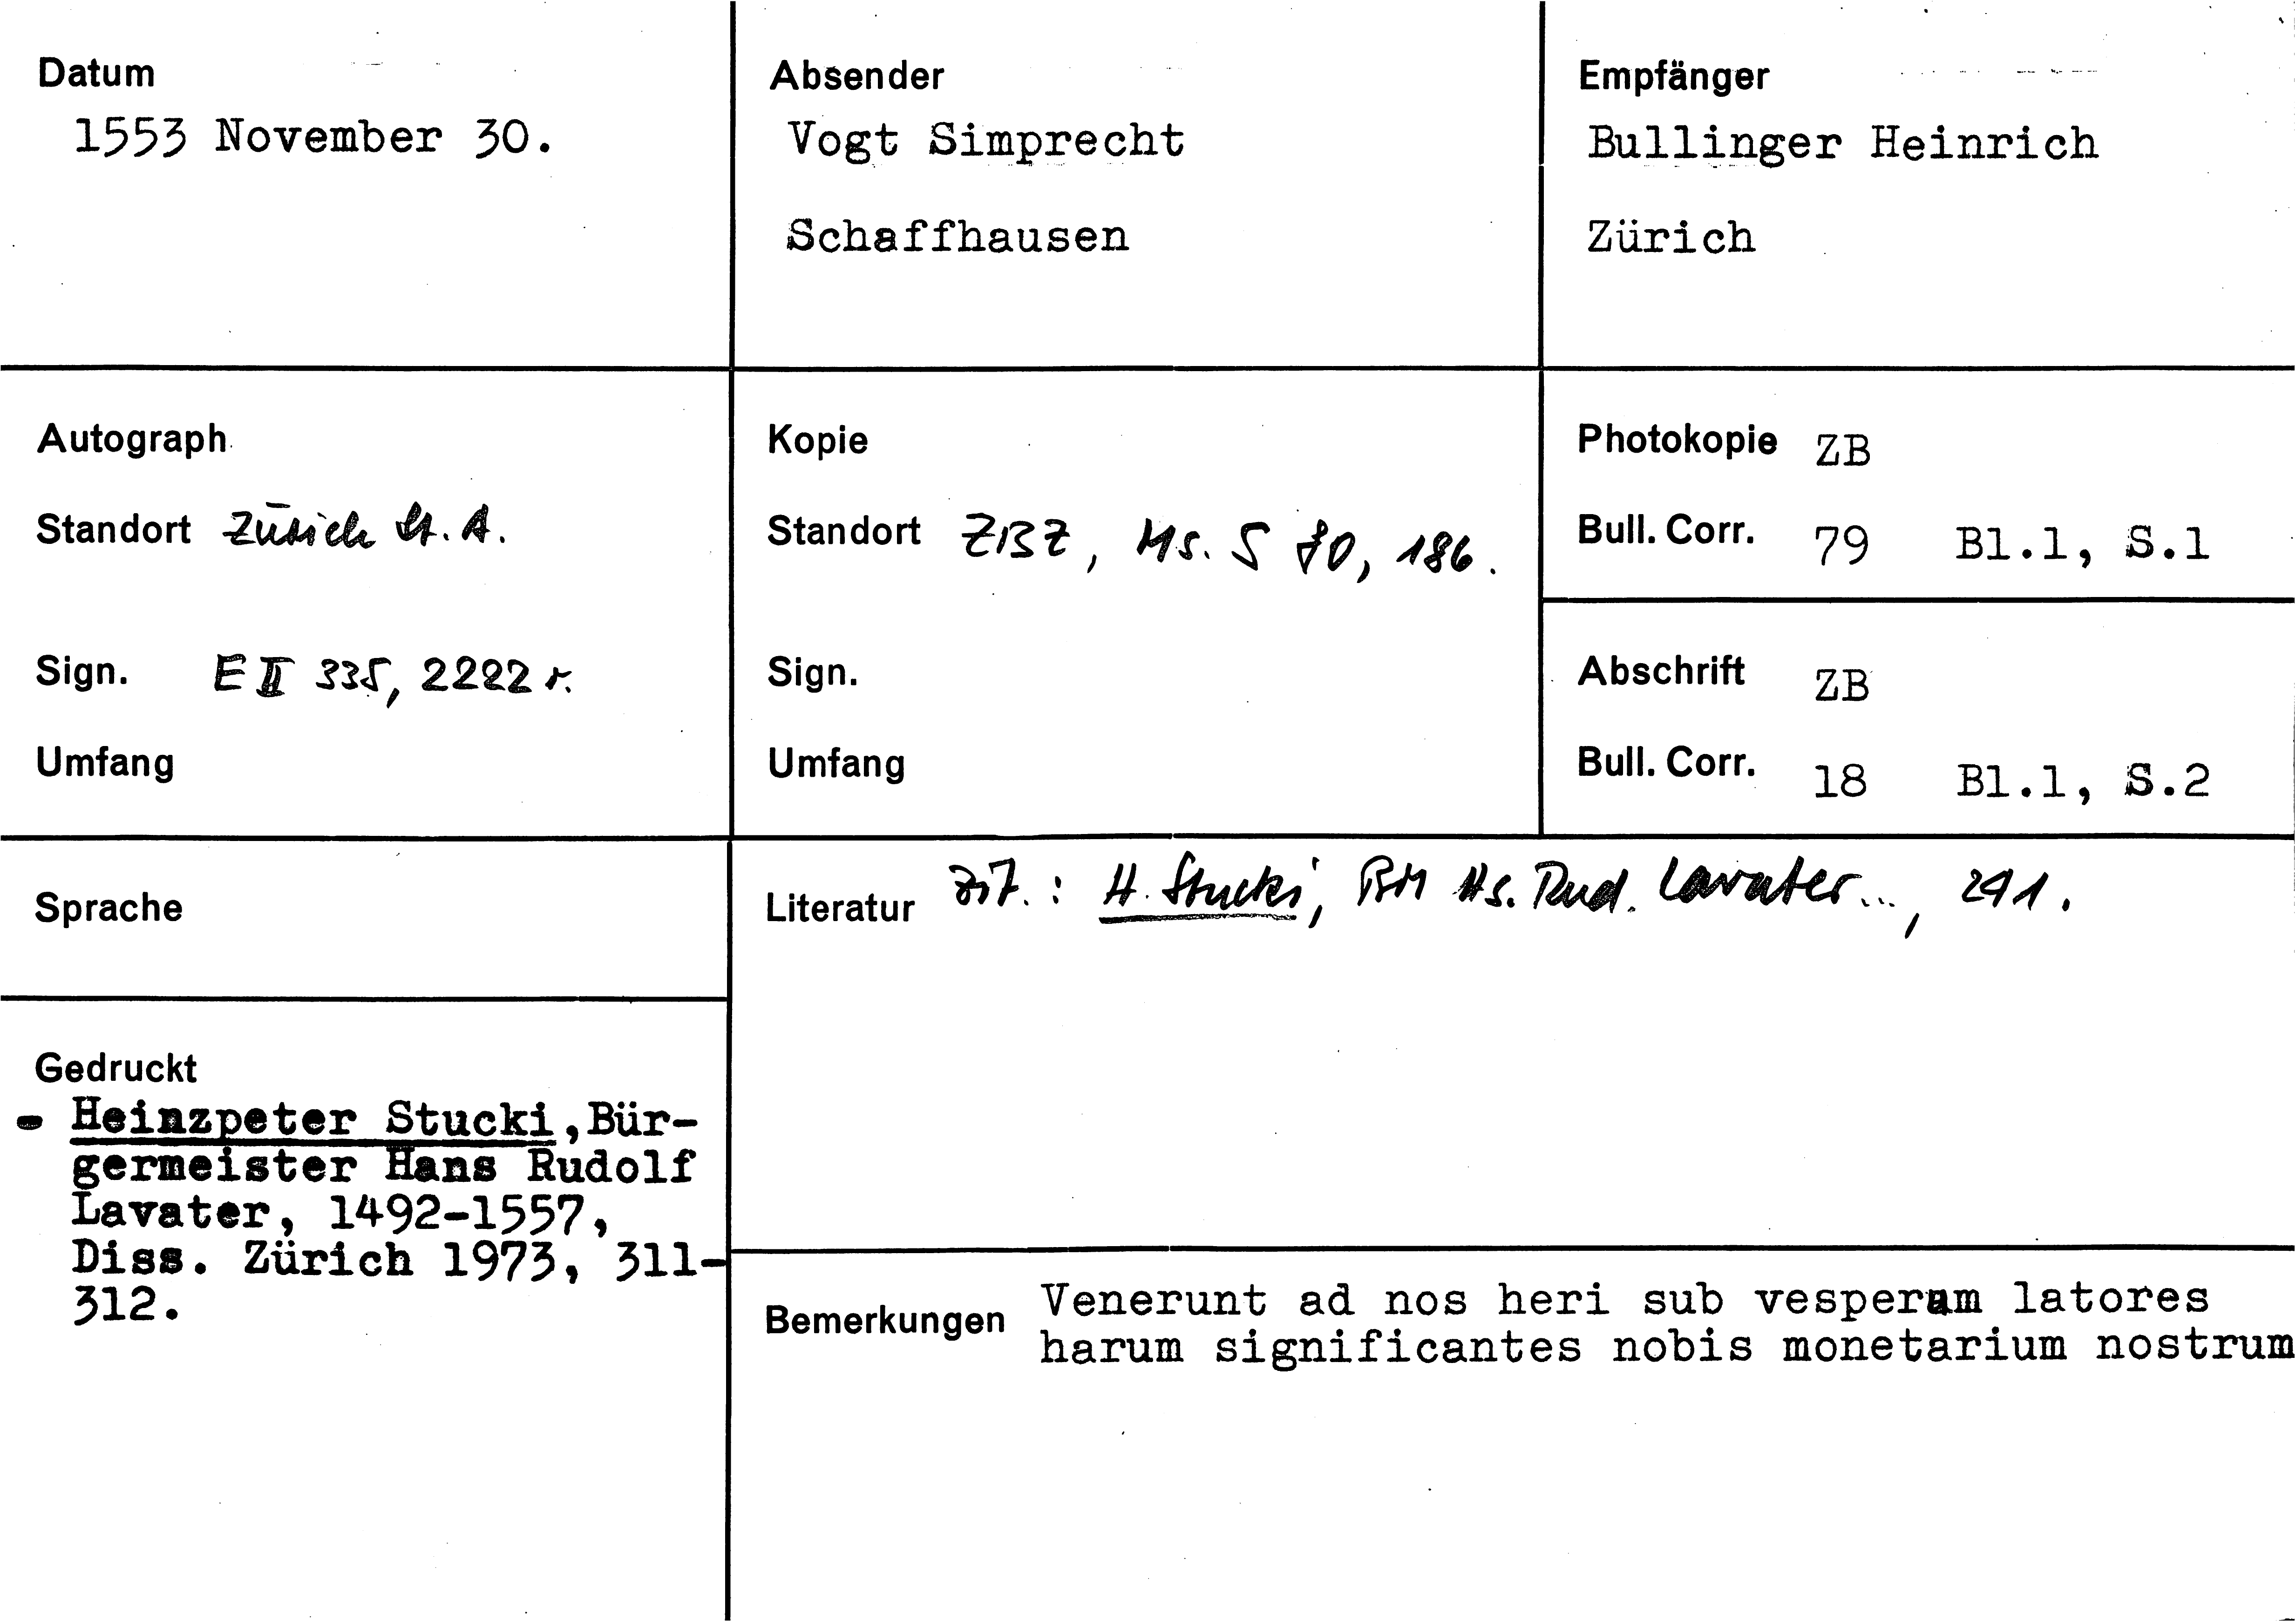 Datum
1553 November 30.
Absender
Vogt Simprecht
Schaffhausen
Empfänger
Bullinger Heinrich
Zürich
Autograph
Standort Zürich St. A.
Sign. E II 335, 2222 r.
Umfang
Kopie
Standort ZBZ, Ms. S 80, 186.
Sign.
Umfang
Photokopie ZB
Bull. Corr. 79 Bl.1, S.1
Abschrift ZB
Bull. Corr. 18 Bl.1, S.2
Sprache
Literatur zit.: H. Stucki, BM Hs. Rud. Lavater..., 291.
Gedruckt
- Heinzpeter Stucki, Bür-
germeister Hans Rudolf
Lavater, 1492-1557,
Diss. Zürich 1973, 311-
312.
Bemerkungen Venerunt ad nos heri sub vesperam latores
harum significantes nobis monetarium nostrum